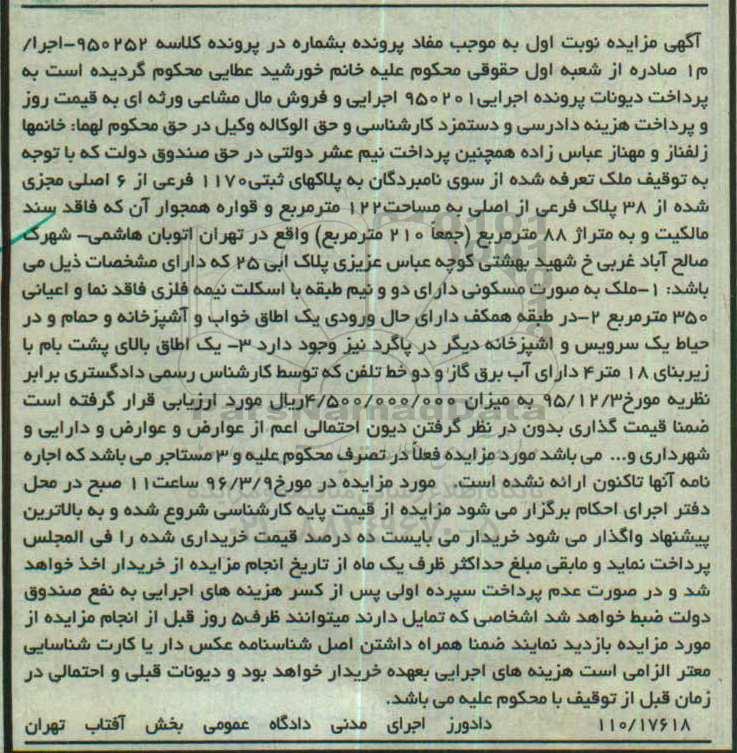 آگهی مزایده نوبت اول به موجب مفاد پرونده بشماره در پرونده کلاسه ۹۵۰۲۵۲-اجرا/
م۱ صادره از شعبه اول حقوقی محکوم علیه خانم خورشید عطایی محکوم گردیده است به
پرداخت دیونات پرونده اجرایی۹۵۰۲۰۱ اجرایی و فروش مال مشاعی ورثه ای به قیمت روز
و پرداخت هزینه دادرسی و دستمزد کارشناسی و حق الوکاله وکیل در حق محکوم لهما: خانمها
زلفناز و مهناز عباس زاده همچنین پرداخت نیم عشر دولتی در حق صندوق دولت که با توجه
به توقیف ملک تعرفه شده از سوی نامبردگان به پلاکهای ثبتی۱۱۷۰ فرعی از ۶ اصلی مجزی
شده از ۳۸ پلاک فرعی از اصلی به مساحت۱۲۲ مترمربع و قواره همجوار آن که فاقد سند
مالکیت و به متراژ ۸۸ مترمربع (جمعا ۲۱۰ مترمربع) واقع در تهران اتوبان هاشمی- شهرک
صالح آباد غربی خ شهید بهشتی کوچه عباس عزیزی پلاک ابی ۲۵ که دارای مشخصات ذیل می
باشد: ۱-ملک به صورت مسکونی دارای دو و نیم طبقه با اسکلت نیمه فلزی فاقد نما و اعیانی
۳۵۰ مترمربع ۲-در طبقه همکف دارای حال ورودی یک اطاق خواب و آشپزخانه و حمام و در
حیاط یک سرویس و اشپزخانه دیگر در پاگرد نیز وجود دارد ۳- یک اطاق بالای پشت بام با
زیربنای ۱۸ متر۴ دارای آب برق گاز و دو خط تلفن که توسط کارشناس رسمی دادگستری برابر
نظریه مورخ۹۵/۱۲/۳ به میزان ۴/۵۰۰/۰۰۰/۰۰۰ریال مورد ارزیابی قرار گرفته است
ضمنا قیمت گذاری بدون در نظر گرفتن دیون احتمالی اعم از عوارض و عوارض و دارایی و
شهرداری و... می باشد مورد مزایده فعلاً در تصرف محکوم علیه و ۳ مستاجر می باشد که اجاره
نامه آنها تاکنون ارائه نشده است. مورد مزایده در مورخ۹۶/۳/۹ ساعت۱۱ صبح در محل
دفتر اجرای احکام برگزار می شود مزایده از قیمت پایه کارشناسی شروع شده و به بالاترین
پیشنهاد واگذار می شود خریدار می بایست ده درصد قیمت خریداری شده را فی المجلس
پرداخت نماید و مابقی مبلغ حداکثر ظرف یک ماه از تاریخ انجام مزایده از خریدار اخذ خواهد
شد و در صورت عدم پرداخت سپرده اولی پس از کسر هزینه های اجرایی به نفع صندوق
دولت ضبط خواهد شد اشخاصی که تمایل دارند میتوانند ظرف۵ روز قبل از انجام مزایده از
مورد مزایده بازدید نمایند ضمنا همراه داشتن اصل شناسنامه عکس دار یا کارت شناسایی
معتر الزامی است هزینه های اجرایی بعهده خریدار خواهد بود و دیونات قبلی و احتمالی در
زمان قبل از توقیف با محکوم علیه می باشد.
۱۱۰/۱۷۶۱۸ دادورز اجرای مدنی دادگاه عمومی بخش آفتاب تهران